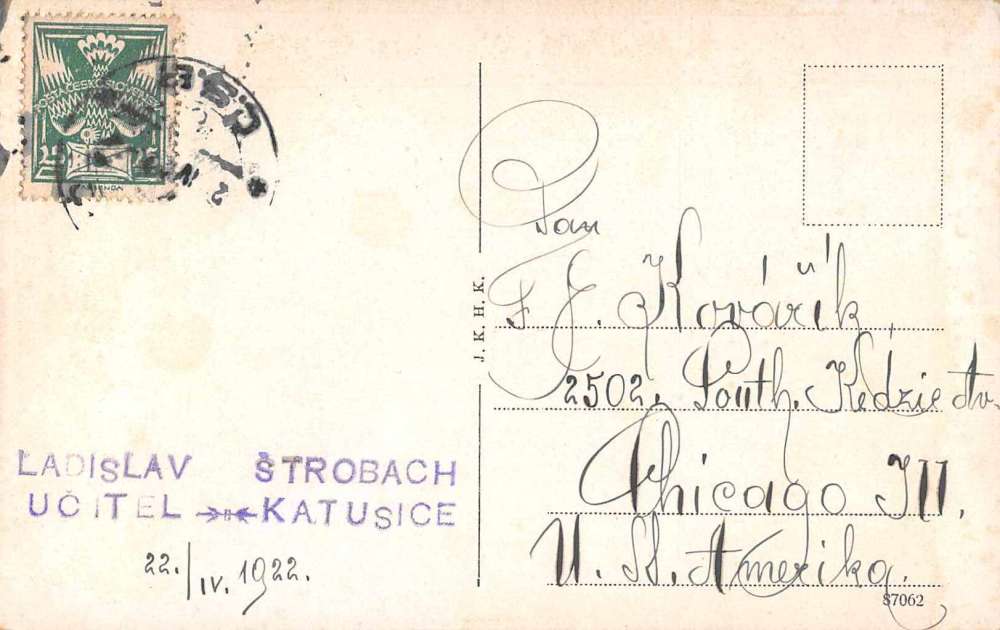 POŠTA ČESKOSLOVENSKÁ
25
ČSP
Pan
F. J. Kovářík
2502, South. Kedzie Av.
Chicago Ill.
U. St. Amerika.
J. K. H. K.
LADISLAV ŠTROBACH
UČITEL KATUSICE
22./IV. 1922.
87062